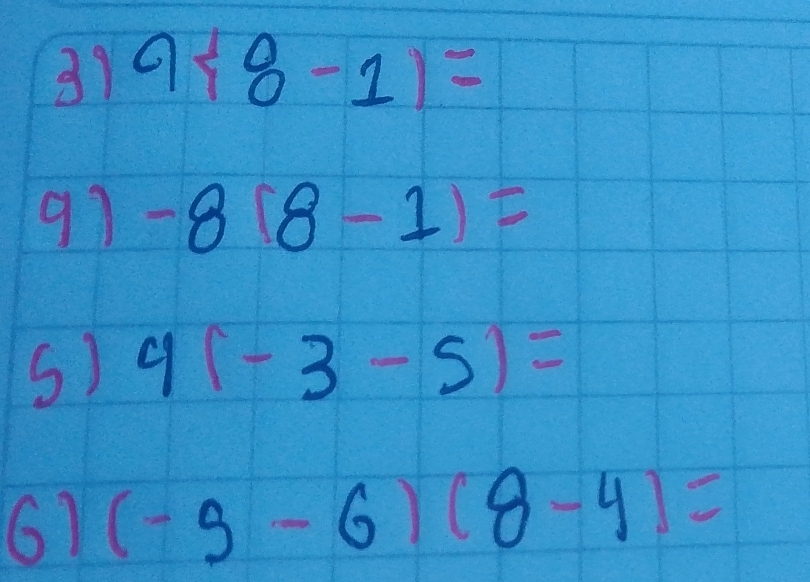 3) 9 { 8 - 1 ) =
4) - 8 ( 8 - 1 ) =
5) 4 ( - 3 - 5 ) =
6) ( - 9 - 6 ) ( 8 - 4 ) =